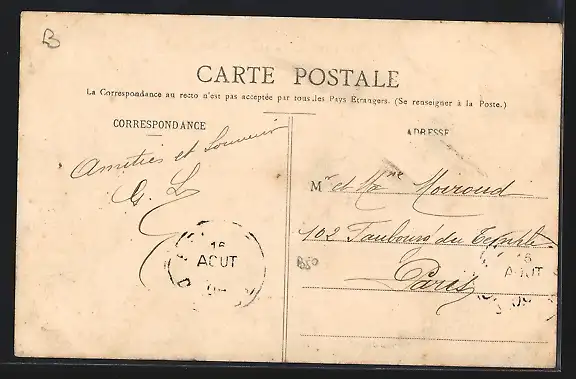 B
CARTE POSTALE
La Correspondance au recto n'est pas acceptée par tous les Pays Etrangers. (Se renseigner à la Poste.)
CORRESPONDANCE
Amitiés et Souvenir
G. L
16
AOUT
ADRESSE
Mr et Mme Moiroud
102 Faubourg du Temple
Paris
16
AOUT
B50